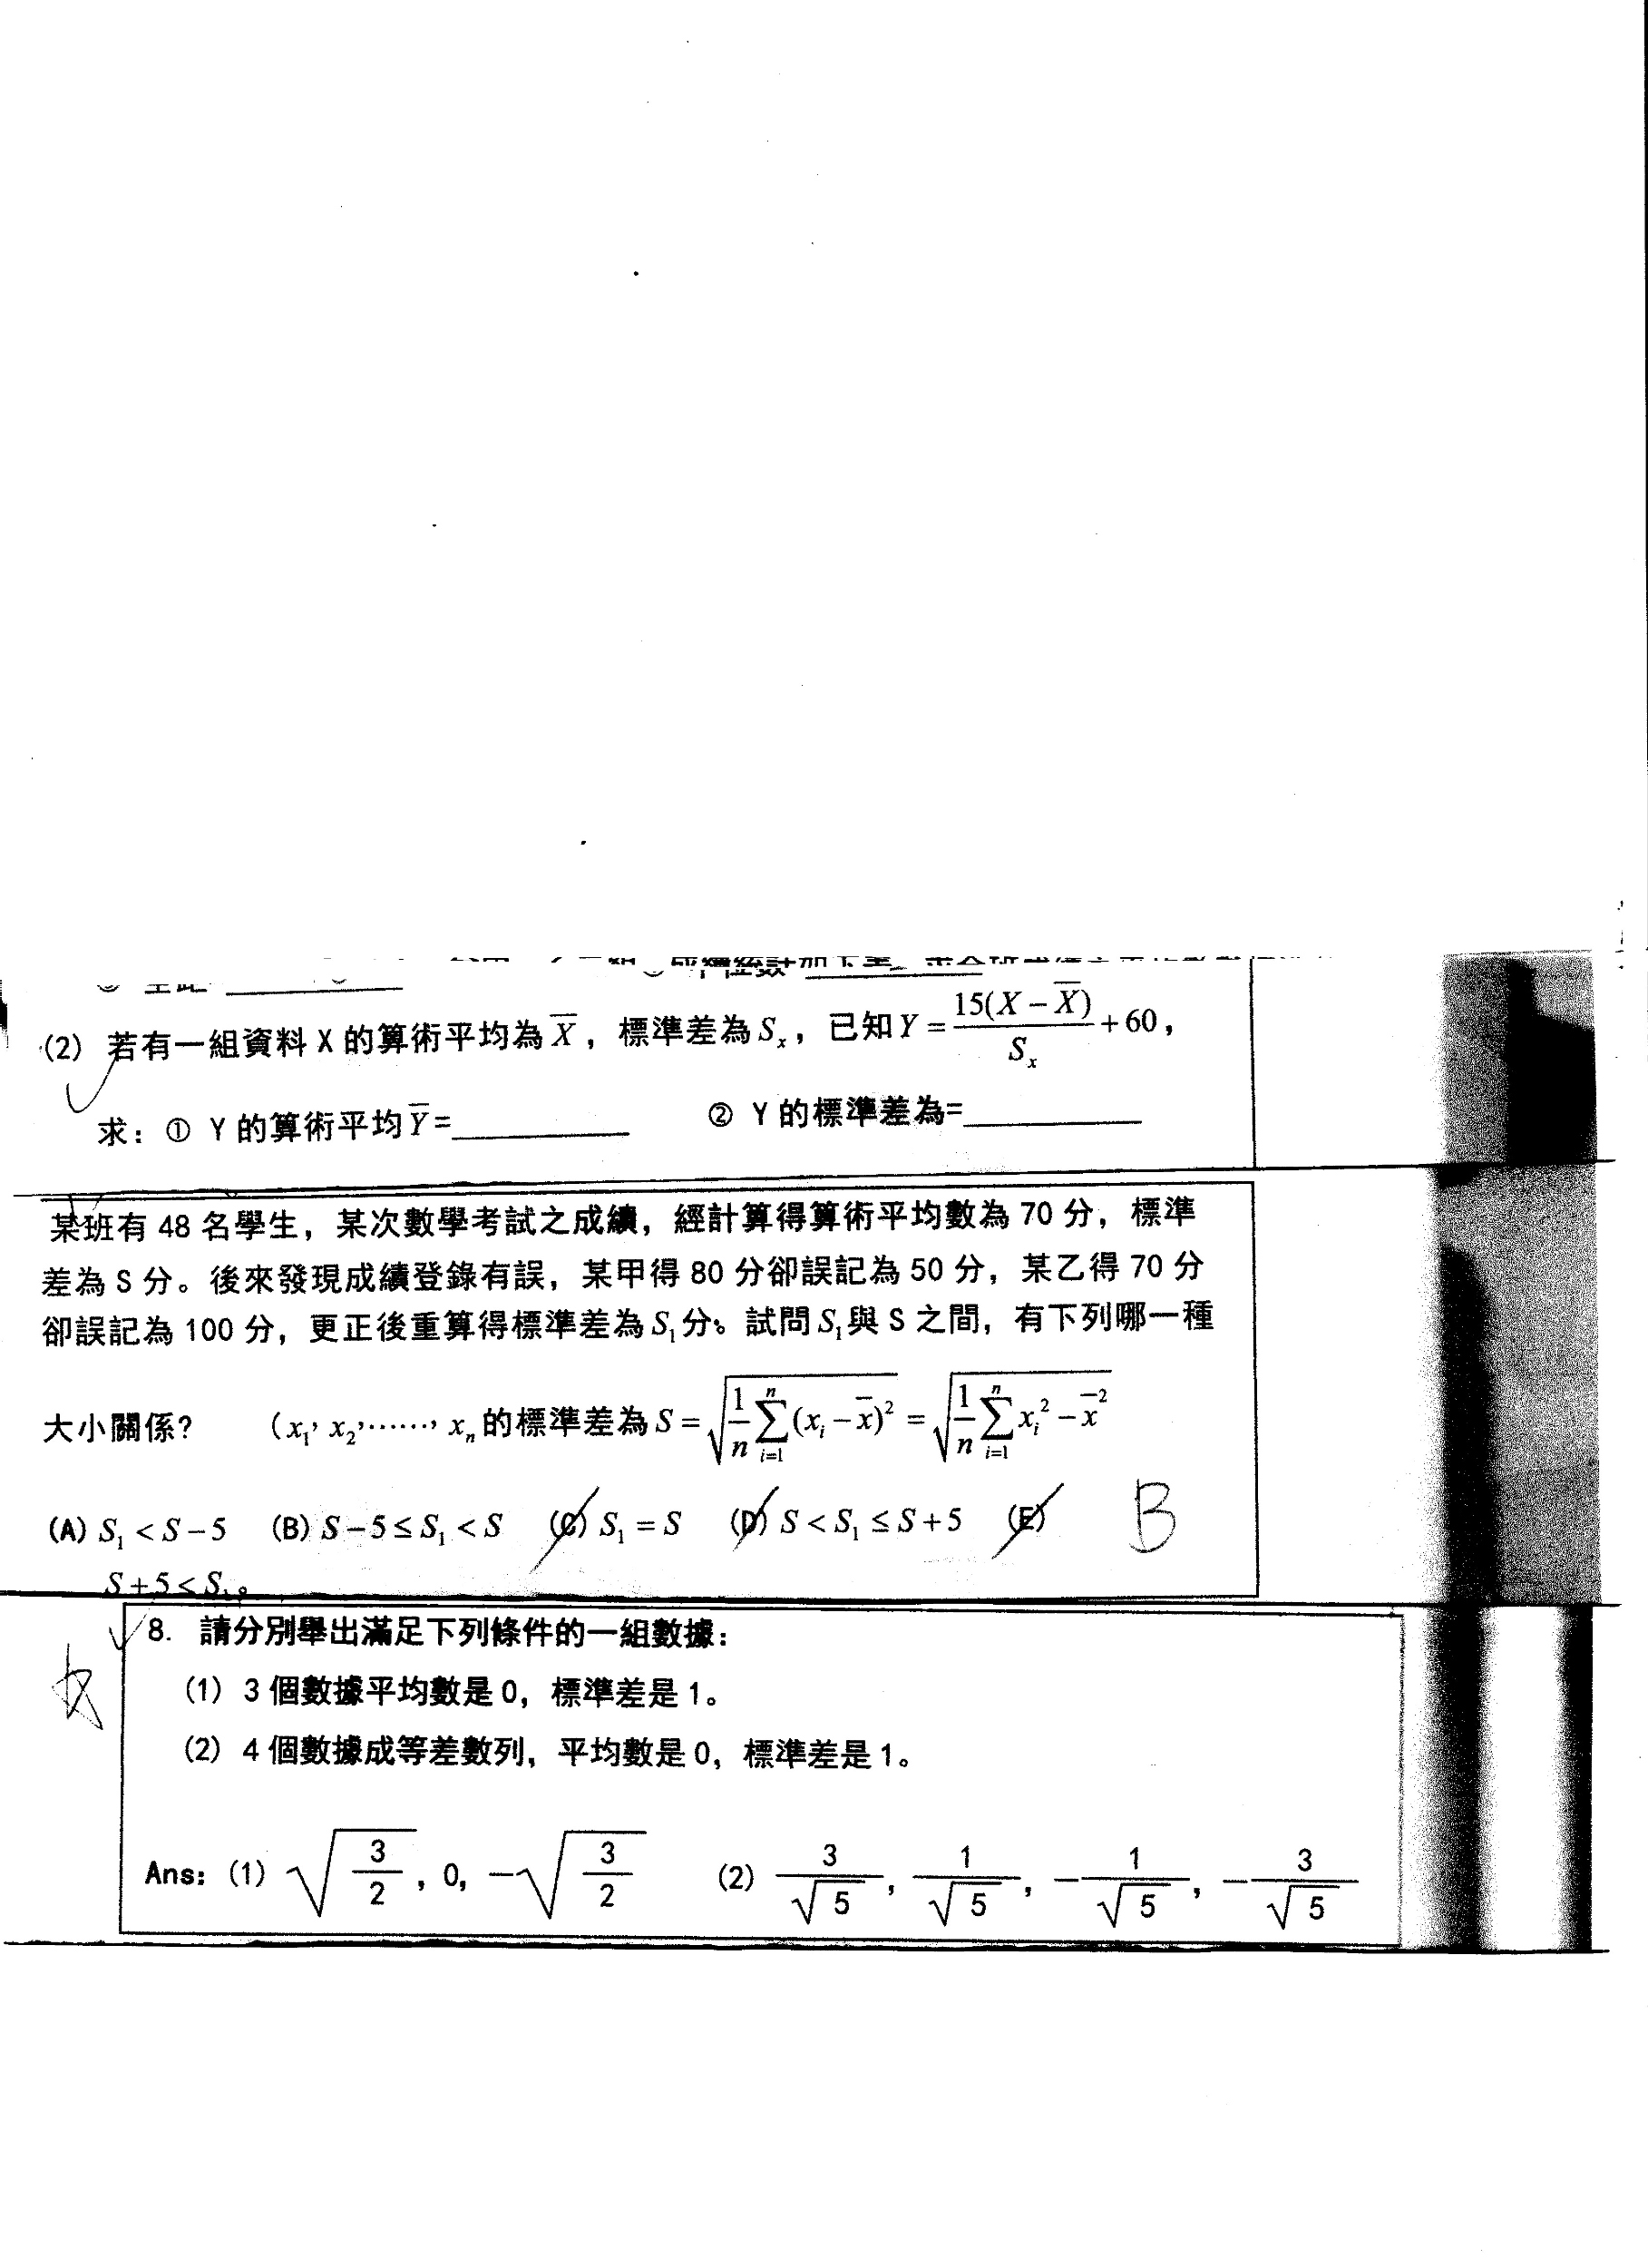 (2) 若有一組資料 X 的算術平均為 X̄，標準差為 Sₓ，已知 Y = 15(X − X̄)/Sₓ + 60，
求：① Y 的算術平均 Ȳ=__________ ② Y 的標準差為=__________
某班有 48 名學生，某次數學考試之成績，經計算得算術平均數為 70 分，標準
差為 S 分。後來發現成績登錄有誤，某甲得 80 分卻誤記為 50 分，某乙得 70 分
卻誤記為 100 分，更正後重算得標準差為 S₁ 分。試問 S₁ 與 S 之間，有下列哪一種
大小關係? (x₁, x₂,……, xₙ 的標準差為 S = √(1/n ∑_{i=1}^{n} (xᵢ − x̄)²) = √(1/n ∑_{i=1}^{n} xᵢ² − x̄²)
(A) S₁ < S − 5 (B) S − 5 ≤ S₁ < S (C) S₁ = S (D) S < S₁ ≤ S + 5 (E) B
S + 5 < S₁。
8. 請分別舉出滿足下列條件的一組數據：
(1) 3 個數據平均數是 0，標準差是 1。
(2) 4 個數據成等差數列，平均數是 0，標準差是 1。
Ans: (1) √(3/2), 0, −√(3/2) (2) 3/√5, 1/√5, −1/√5, −3/√5